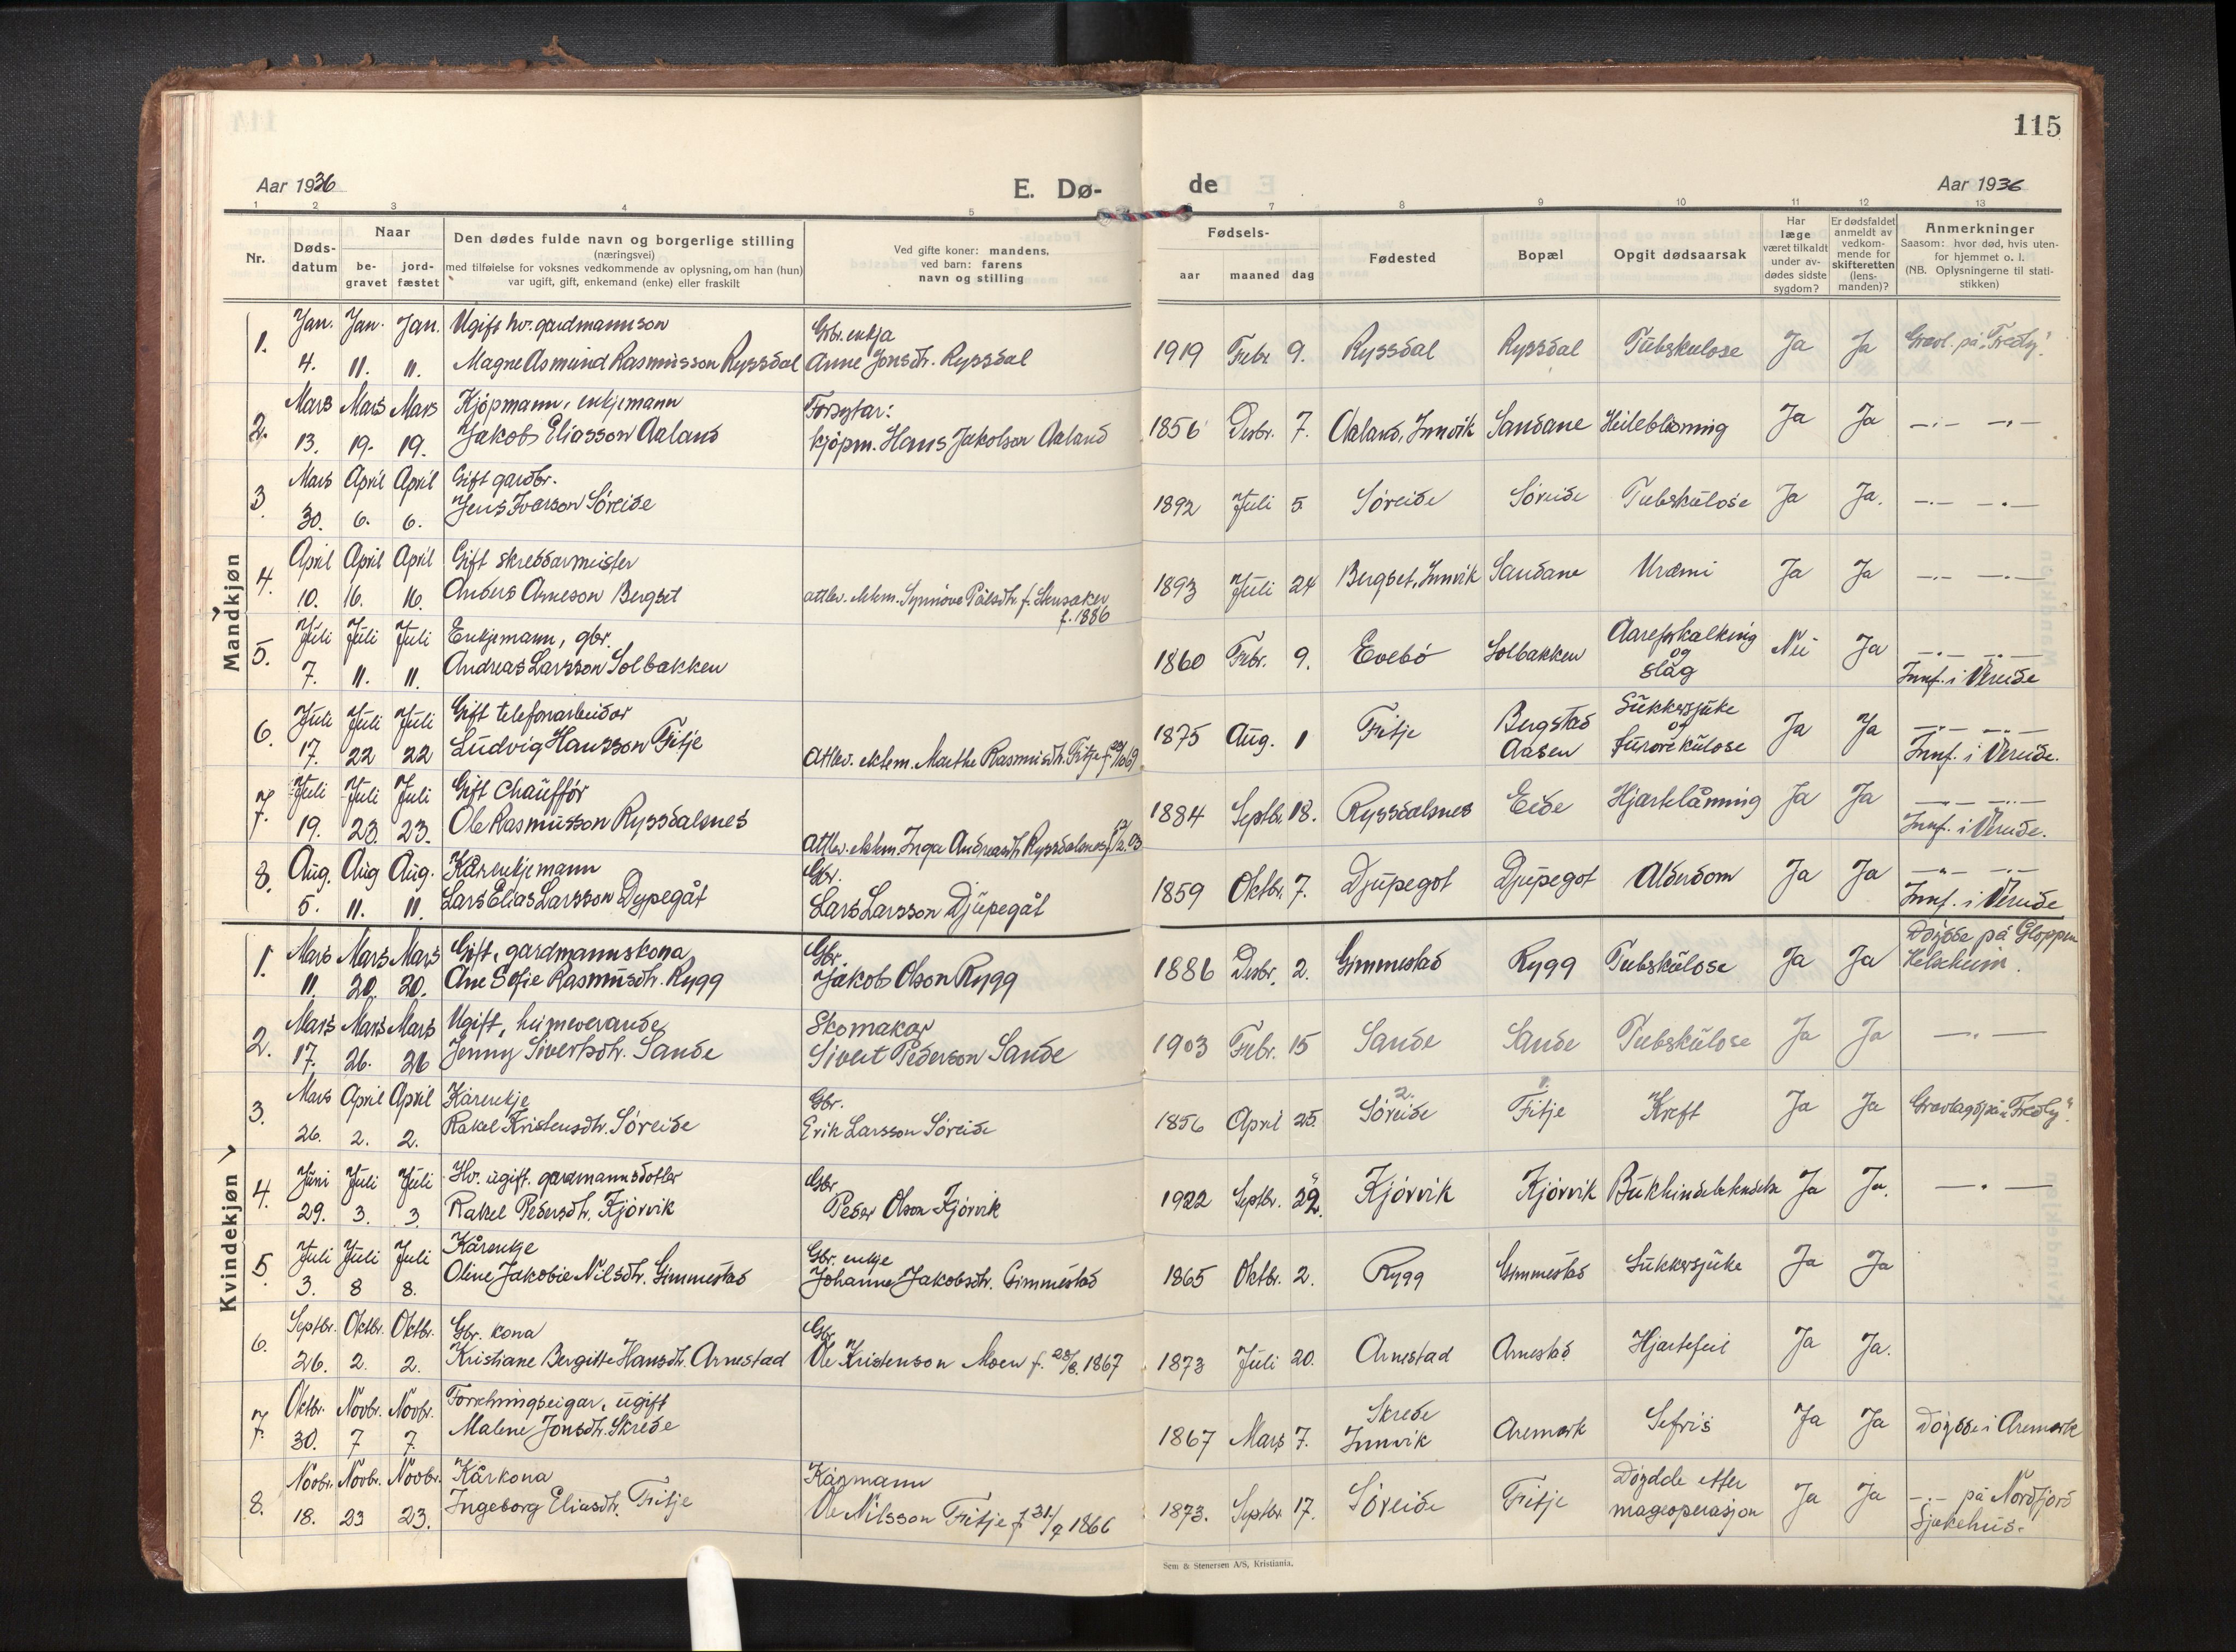 115
Aar 1936
E. Dø-
de
Aar 1936
1 2 3 4 5 6 7 8 9 10 11 12 13
Nr.
Døds-
datum
Naar
be-
gravet
jord-
fæstet
Den dødes fulde navn og borgerlige stilling
(næringsvei)
med tilføielse for voksnes vedkommende av oplysning, om han (hun)
var ugift, gift, enkemand (enke) eller fraskilt
Ved gifte koner: mandens,
ved barn: farens
navn og stilling
Fødsels-
aar maaned dag
Fødested
Bopæl
Opgit dødsaarsak
Har
læge
været tilkaldt
under av-
dødes sidste
sygdom?
Er dødsfaldet
anmeldt av
vedkom-
mende for
skifteretten
(lens-
manden)?
Anmerkninger
Saasom: hvor død, hvis uten-
for hjemmet o. l.
(NB. Oplysningerne til stati-
stikken)
Mandkjøn
1. Jan. Jan. Jan. Ugift hv. gardmannson Gbr. enkja
4. 11. 11. Magne Asmund Rasmusson Ryssdal Anne Jonsdtr. Ryssdal 1919 Febr. 9. Ryssdal Ryssdal Tubskulose Ja Ja Gravl. på "Fredly".
2. Mars Mars Mars Kjøpmann, enkjemann Forsytar:
13. 19. 19. Jakob Eliasson Aaland kjøpm. Hans Jakobson Aaland 1856 Desbr. 7. Aaland, Innvik Sandane Heilebløming Ja Ja —.— —.—
3. Mars April April Gift gardbr.
30. 6. 6. Jens Ivarson Søreide 1892 Juli 5 Søreide Søreide Tubskulose Ja Ja. —.— —.—
4. April April April Gift skreddarmeister
10. 16. 16. Anders Arneson Bergset attlev. ektem. Synnøve Pålsdtr. f. 1886 1893 Juli 24 Bergset, Innvik Sandane Uræmi Ja Ja —.— —.—
5. Juli Juli Juli Enkjemann, gbr.
7. 11. 11. Andreas Larsson Solbakken 1860 Febr. 9. Evebø Solbakken Aareforkalking og slag Nei Ja —.— —.— Innf. i Vereide
6. Juli Juli Juli Gift telefonarbeidar
17. 22 22 Ludvig Hansson Fitje Attlev. ektem. Marthe Rasmusdtr. Fitje 1875 Aug. 1 Fitje Bergstad Aasen Sukkersjuke og furonkulose Ja Ja —.— —.— Innf. i Vereide.
7. Juli Juli Juli Gift chauffør
19. 23. 23. Ole Rasmusson Ryssdalsnes attlev. ektem. Inga Andreasdtr. Ryssdalsnes 1884 Septbr. 18. Ryssdalsnes Eide Hjartelåmming Ja Ja —.— —.— Innf. i Vereide.
8. Aug. Aug Aug. Kårenkjemann Gbr.
5. 11. 11. Lars Elias Larsson Dypegåt Lars Larsson Djupegåt 1859 Oktbr. 7. Djupegot Djupegot Alderdom Ja Ja —.— —.— Innf. i Vereide
Kvindekjøn
1. Mars Mars Mars Gift, gardmannskona Gbr.
11. 20. 20. Ane Sofie Rasmusdtr. Rygg Jakob Olson Rygg 1886 Desbr. 2. Gimmestad Rygg Tubskulose Ja Ja Døydde på Gloppen Helseheim.
2. Mars Mars Mars Ugift, heimeverande Skomakar
17. 26. 26 Jenny Sivertsdtr. Sande Sivert Pederson Sande 1903 Febr. 15 Sande Sande Tubskulose Ja Ja —.—
3. Mars April April Kårenkje Gbr.
26. 2. 2. Rakel Kristensdtr. Søreide Erik Larsson Søreide 1856 April 25. Søreide Fitje Kreft Ja Ja Gravlagd på "Fredly".
4. Juni Juli Juli Hv. ugift. gardmannsdotter Gbr
29. 3. 3. Rakel Pedersdtr. Kjørvik Peder Olson Kjørvik 1922 Septbr. 22. Kjørvik Kjørvik Bukhindebetendelse Ja Ja. —.—
5. Juli Juli Juli Kårenkje Gbr. enkje
3. 8 8. Oline Jakobie Nilsdtr. Gimmestad Johanne Jakobsdtr. Gimmestad 1865 Oktbr. 2. Rygg Gimmestad Sukkersjuke Ja Ja
6. Septbr. Oktbr. Oktbr. Gbr. kona Gbr.
26. 2. 2. Kristiane Bergitte Hansdtr. Arnestad Ole Kristenson Moen f. 28/8. 1867 1873 Juli 20. Arnestad Arnestad Hjartefeil Ja Ja.
7. Oktbr. Novbr. Novbr. Forretningseigar, ugift
30. 7 7. Malene Jonsdtr. Skrede 1867 Mars 7. Skrede Innvik Aremark Sefris Ja Ja Døydde i Aremark
8. Novbr. Novbr. Novbr. Kårkona Kårmann
18. 23 23. Ingeborg Eliasdtr. Fitje Ole Nilsson Fitje f 31/7 1866 1873. Septbr. 17. Søreide Fitje Døydde etter mageoperasjon Ja Ja —.— på Nordfjord Sjukehus.
Sem & Stenersen A/S, Kristiania.